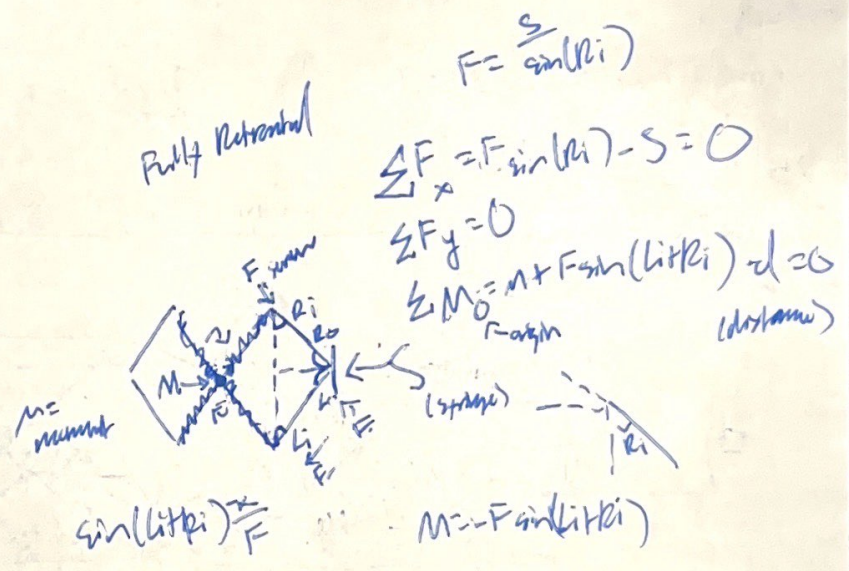 F = S/sin(Ri)
Fully Retracted
ΣFx = F sin(Ri) - S = 0
ΣFy = 0
ΣMo = M + F sin(Li+Ri) · d = 0
origin
(distance)
F
Ri
Ro
M
S
(spring)
M =
moment
Li
Ri
sin(Li+Ri) x/F
M = -F sin(Li+Ri)